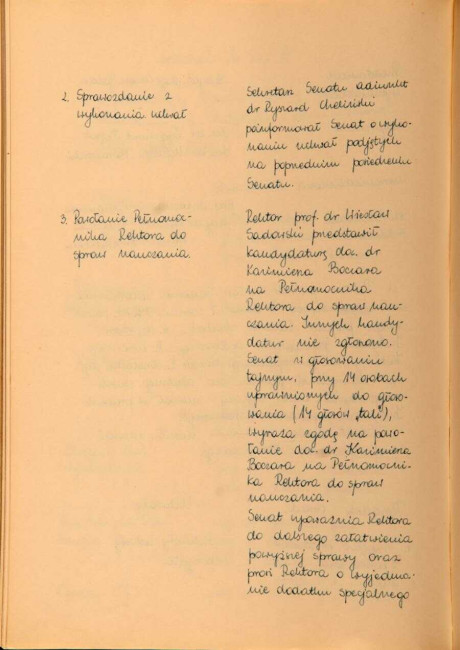 2. Sprawozdanie z
wykonania uchwał
Sekretarz Senatu adiunkt
dr Ryszard Cheliński
poinformował Senat o wyko-
naniu uchwał podjętych
na poprzednim posiedzeniu
Senatu.
3. Powołanie Pełnomoc-
nika Rektora do
spraw nauczania.
Rektor prof. dr Wiesław
Sadowski przedstawił
kandydaturę doc. dr
Kazimierza Boczara
na Pełnomocnika
Rektora do spraw nau-
czania. Innych kandy-
datur nie zgłoszono.
Senat w głosowaniu
tajnym, przy 14 osobach
uprawnionych do głoso-
wania (14 głosów „tak"),
wyraża zgodę na powo-
łanie doc. dr Kazimierza
Boczara na Pełnomocni-
ka Rektora do spraw
nauczania.
Senat upoważnia Rektora
do dalszego załatwienia
powyższej sprawy oraz
prosi Rektora o wyjedna-
nie dodatku specjalnego